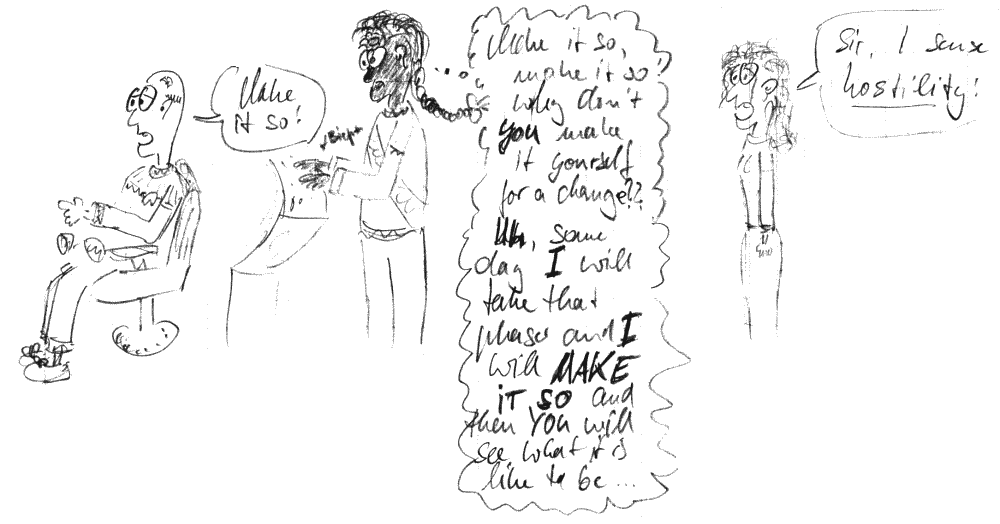 Make
it so!
*Biep*
Make it so,
make it so!
why don't
you make
it yourself
for a change??
Uh, some
day I will
take that
phaser and I
will MAKE
iT SO and
then YOU will
see what it is
like to be...
Sir, I sense
hostility!